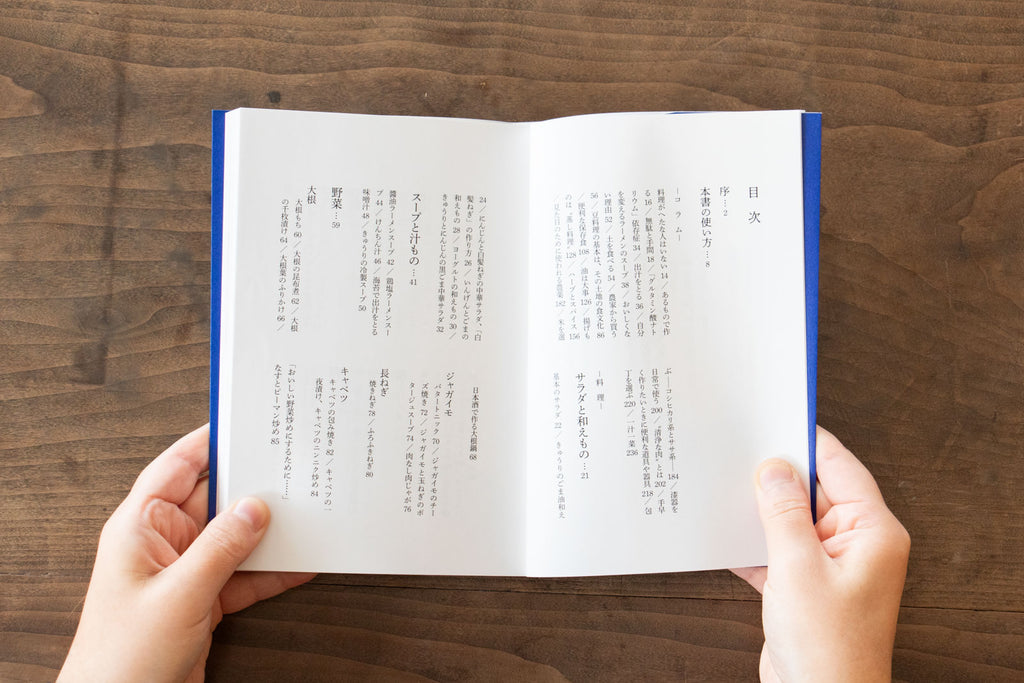 目次
序…2
本書の使い方…8
―コラム―
料理がへたな人はいない 14 ／ あるもので作
る 16 ／ 無駄と手間 18 ／ 「グルタミン酸ナト
リウム」依存症 34 ／ 出汁をとる 36 ／ 自分
を変えるラーメンのスープ 38 ／ おいしくな
い理由 52 ／ 土を食べる 54 ／ 農家から買う
56 ／ 豆料理の基本は、その土地の食文化 86
／ 便利な保存食 108 ／ 油は大事 126 ／ 揚げも
のは「蒸し料理」128 ／ ハーブとスパイス 156
／ 見た目のために使われる農薬 182 ／ 米を選
ぶ――コシヒカリ系とササ系――184 ／ 漆器を
日常で使う 200 ／ “清浄な肉”とは 202 ／ 手早
く作りたいときに便利な道具や器具 218 ／ 包
丁を選ぶ 220 ／ 一汁一菜 236
―料理―
サラダと和えもの…21
基本のサラダ 22 ／ きゅうりのごま油和え
24 ／ にんじんと白髪ねぎの中華サラダ、「白
髪ねぎ」の作り方 26 ／ いんげんとごまの
和えもの 28 ／ ヨーグルトの和えもの 30 ／
きゅうりとにんじんの黒ごま中華サラダ 32
スープと汁もの…41
醤油ラーメンスープ 42 ／ 鶏塩ラーメンスー
プ 44 ／ けんちん汁 46 ／ 海苔で出汁をとる
味噌汁 48 ／ きゅうりの冷製スープ 50
野菜…59
大根
大根もち 60 ／ 大根の昆布煮 62 ／ 大根
の千枚漬け 64 ／ 大根葉のふりかけ 66 ／
日本酒で作る大根鍋 68
ジャガイモ
パタートニック 70 ／ ジャガイモのチー
ズ焼き 72 ／ ジャガイモと玉ねぎのポ
タージュスープ 74 ／ 肉なし肉じゃが 76
長ねぎ
焼きねぎ 78 ／ ふろふきねぎ 80
キャベツ
キャベツの包み焼き 82 ／ キャベツの一
夜漬け、キャベツのニンニク炒め 84
「おいしい野菜炒めにするために……」
なすとピーマン炒め 85